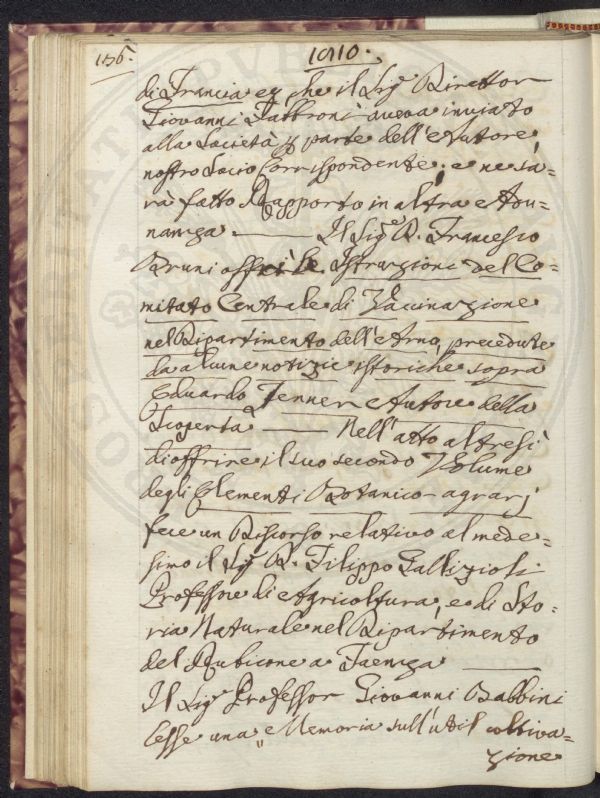 156. 1810.
di Francia e che il Sig.r Direttor
Giovanni Fabbroni aveva inviato
alla Società p parte dell'Autore
nostro Socio Corrispondente; e ne sa=
rà fatto Rapporto in altra Adu=
nanza. —— Il Sig.e D. Francesco
Bruni offrì le Istruzioni del Co=
mitato Centrale di Vaccinazione
nel Dipartimento dell'Arno, precedute
da alcune notizie istoriche sopra
Eduardo Jenner Autore della
Scoperta —— Nell'atto altresì
di offrire il suo secondo Volume
degli Elementi Botanico-agrarj
fece un Discorso relativo al mede=
simo il Sig.r D. Filippo Gallizioli
Professore di Agricoltura, e di Sto=
ria Naturale nel Dipartimento
del Rubicone a Faenza ——
Il Sig.r Professor Giovanni Babbini
lesse una „ Memoria sull'util coltiva=
zione